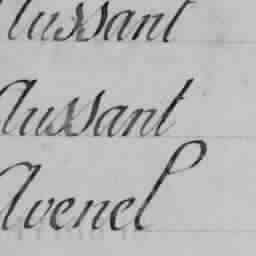 Aussant
Aussant
Avenel